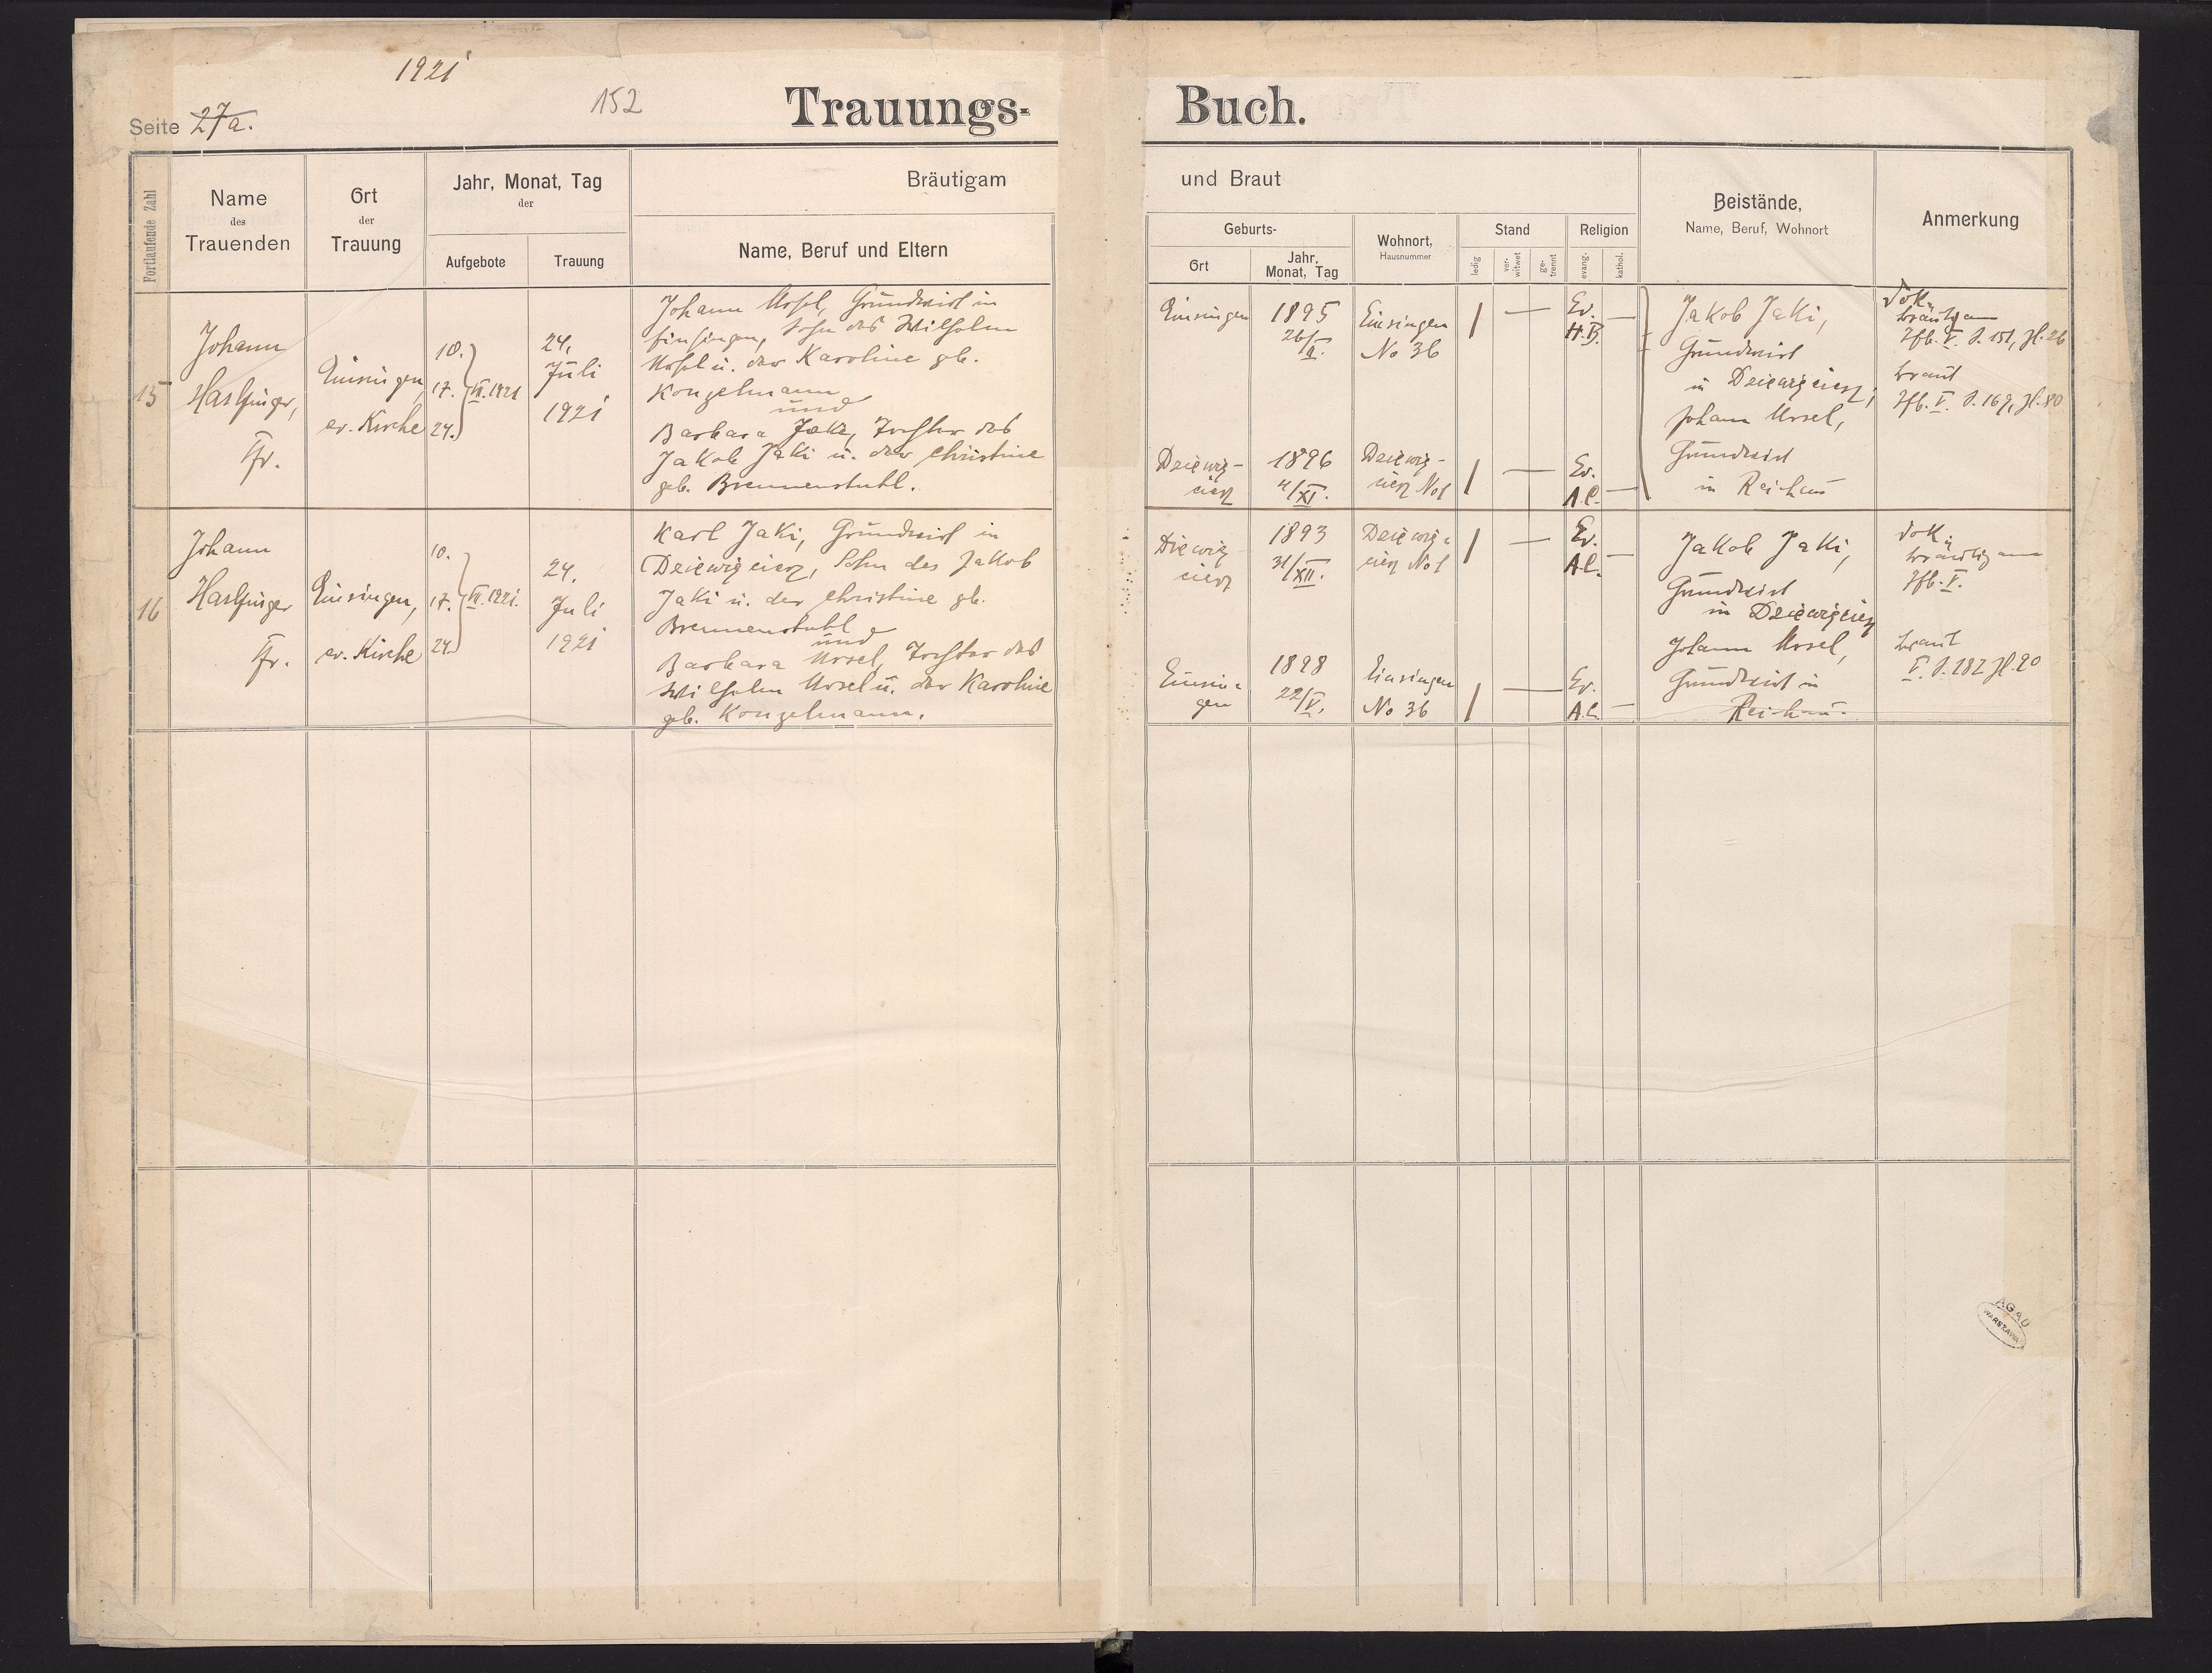 1921
152
Seite 27a.
Trauungs-Buch.
Fortlaufende Zahl
Name
des
Trauenden
Ort
der
Trauung
Jahr, Monat, Tag
der
Aufgebote
Trauung
Bräutigam und Braut
Name, Beruf und Eltern
Geburts-
Ort
Jahr,
Monat, Tag
Wohnort,
Hausnummer
Stand
ledig
ver-
witwet
ge-
trennt
Religion
evang.
kathol.
Beistände,
Name, Beruf, Wohnort
Anmerkung
15
Johann
Einsingen,
ev. Kirche
10.
17. VII. 1921
24.
24.
Juli
1921
Johann Ursel, Grundwirt in
Einsingen, Sohn des Wilhelm
Ursel u. der Karoline gb.
Konzelmann
und
Barbara Jaki, Tochter des
Jakob Jaki u. der Christine
geb. Brennenstuhl.
Einsingen
1895
26/
Einsingen
No 36
Ev.
H.B.
Dziewię-
cierz
1896
4/XI.
Dziewię-
cierz No 1
Ev.
A.C.
Jakob Jaki,
Grundwirt
in Dziewięcierz,
Johann Ursel,
Grundwirt
in Reichau
Dok.
Bräutigam
Tfb. V. S. 151, Zl. 26
Braut
Tfb. V. S. 169, Zl. 80
16
Johann
Einsingen,
ev. Kirche
10.
17. VII. 1921.
24.
24.
Juli
1921
Karl Jaki, Grundwirt in
Dziewięcierz, Sohn des Jakob
Jaki u. der Christine gb.
Brennenstuhl
und
Barbara Ursel, Tochter des
Wilhelm Ursel u. der Karoline
geb. Konzelmann.
Dziewię-
cierz
1893
31/XII.
Dziewię-
cierz No 1
Ev.
A.C.
Einsin-
gen
1898
22/V.
Einsingen
No 36
Ev.
A.C.
Jakob Jaki,
Grundwirt
in Dziewięcierz
Johann Ursel,
Grundwirt in
Reichau.
Dok.
Bräutigam
Tfb. V.
Braut
V. S. 182 Zl. 20
AGAD
WARSZAWA